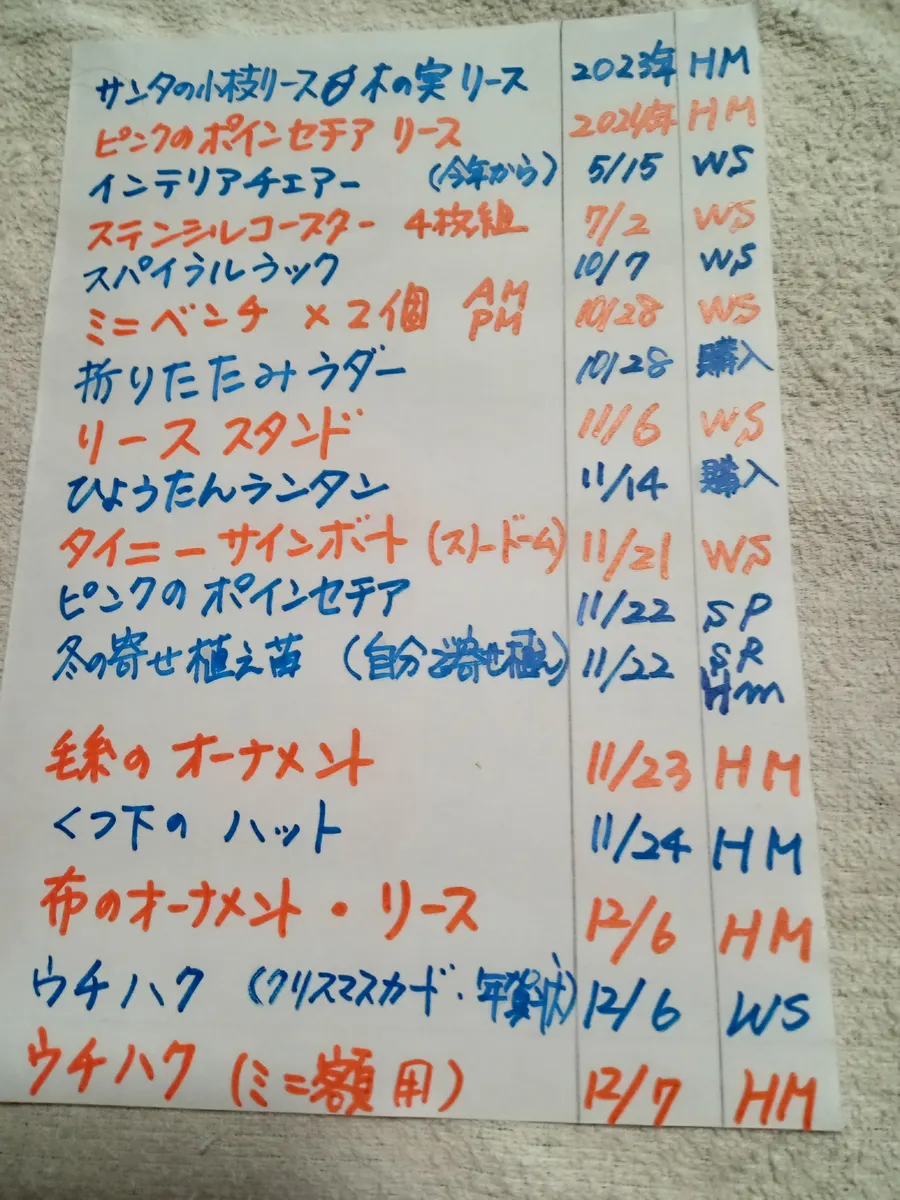 サンタの小枝リース 木の実リース 2023年 HM
ピンクのポインセチア リース 2024年 HM
インテリアチェアー (今年から) 5/15 WS
ステンシルコースター 4枚組 7/2 WS
スパイラルラック 10/7 WS
ミニベンチ ×2個 AM PM 10/28 WS
折りたたみラダー 10/28 購入
リース スタンド 11/6 WS
ひょうたんランタン 11/14 購入
タイニーサインボート (スリードーム) 11/21 WS
ピンクの ポインセチア 11/22 SP
冬の寄せ植え苗 (自分で寄せ植え) 11/22 SR Hm
毛糸の オーナメント 11/23 HM
くつ下の ハット 11/24 HM
布のオーナメント・リース 12/6 HM
ウチハク (クリスマスカード・年賀状) 12/6 WS
ウチハク (ミニ額用) 12/7 HM